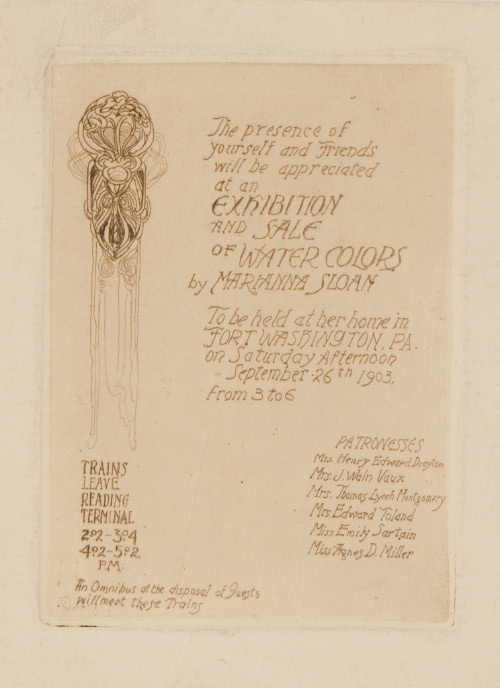 The presence of
yourself and Friends
will be appreciated
at an
EXHIBITION
AND SALE
OF WATER COLORS
by MARIANNA SLOAN
To be held at her home in
FORT WASHINGTON, PA.
on Saturday Afternoon
September 26th 1903,
From 3 to 6
PATRONESSES
Mrs. Henry Edward Drayton
Mrs. J. Waln Vaux
Mrs. Thomas Lynch Montgomery
Mrs Edward Toland
Miss Emily Sartain
Miss Agnes D. Miller
TRAINS
LEAVE
READING
TERMINAL
202-304
402-502
P.M.
An Omnibus at the disposal of Guests
will meet these Trains